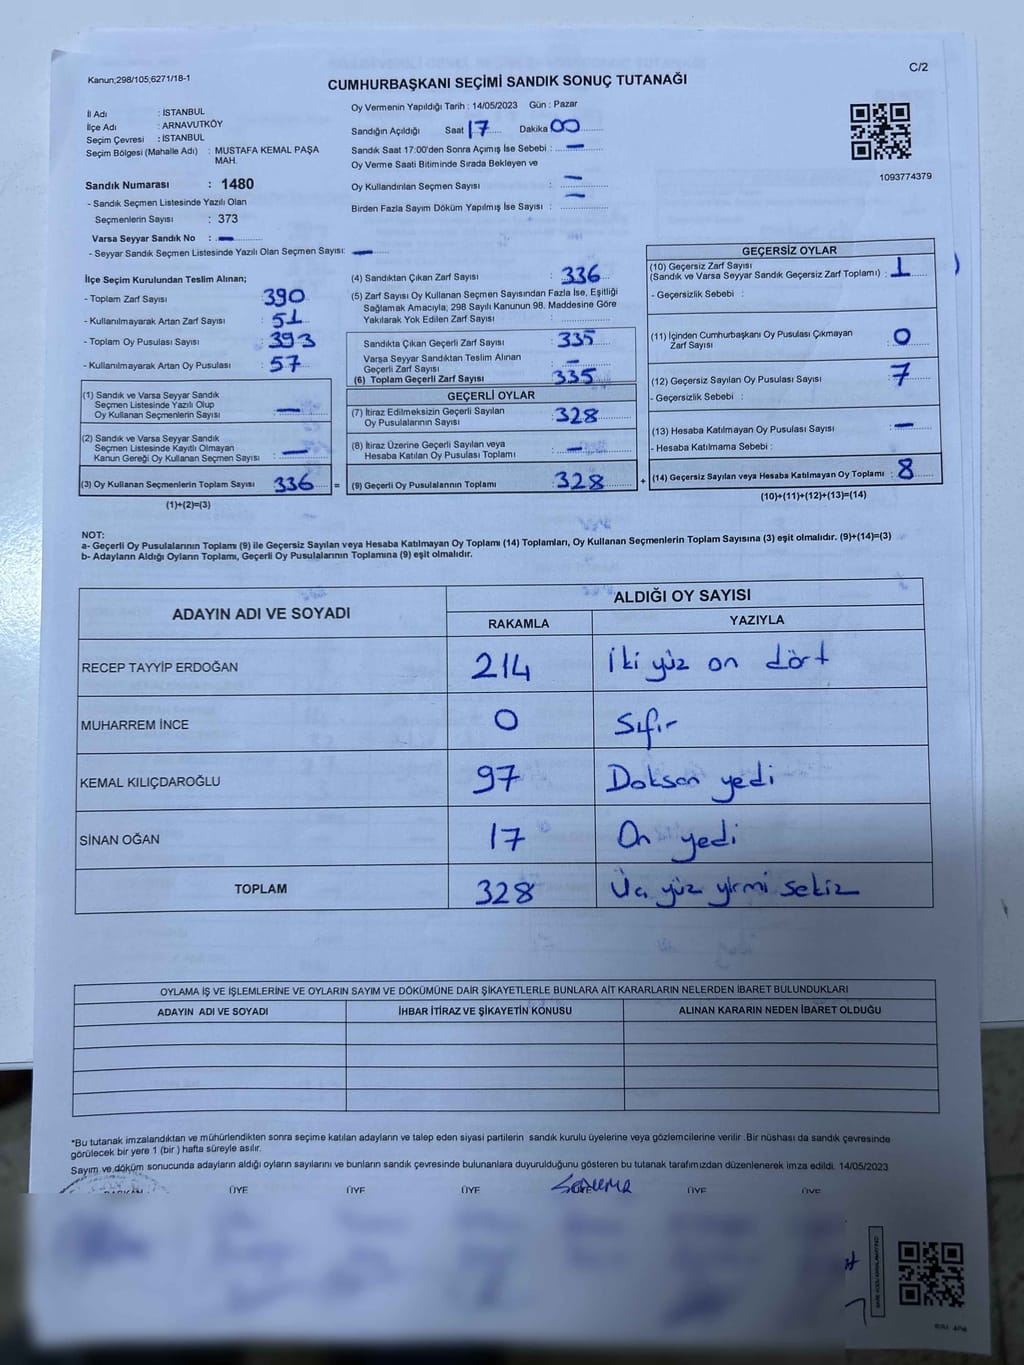 Kanun;298/105;6271/18-1
C/2
CUMHURBAŞKANI SEÇİMİ SANDIK SONUÇ TUTANAĞI
İl Adı : İSTANBUL
İlçe Adı : ARNAVUTKÖY
Seçim Çevresi : İSTANBUL
Seçim Bölgesi (Mahalle Adı) : MUSTAFA KEMAL PAŞA MAH.
Sandık Numarası : 1480
- Sandık Seçmen Listesinde Yazılı Olan
Seçmenlerin Sayısı : 373
Varsa Seyyar Sandık No : -
- Seyyar Sandık Seçmen Listesinde Yazılı Olan Seçmen Sayısı: -
Oy Vermenin Yapıldığı Tarih : 14/05/2023 Gün : Pazar
Sandığın Açıldığı Saat 17 Dakika 00
Sandık Saat 17:00'den Sonra Açımış İse Sebebi : -
Oy Verme Saati Bitiminde Sırada Bekleyen ve
Oy Kullandırılan Seçmen Sayısı : -
Birden Fazla Sayım Döküm Yapılmış İse Sayısı : -
1093774379
İlçe Seçim Kurulundan Teslim Alınan;
- Toplam Zarf Sayısı : 390
- Kullanılmayarak Artan Zarf Sayısı : 51
- Toplam Oy Pusulası Sayısı : 393
- Kullanılmayarak Artan Oy Pusulası : 57
(1) Sandık ve Varsa Seyyar Sandık
Seçmen Listesinde Yazılı Olup
Oy Kullanan Seçmenlerin Sayısı : -
(2) Sandık ve Varsa Seyyar Sandık
Seçmen Listesinde Kayıtlı Olmayan
Kanun Gereği Oy Kullanan Seçmen Sayısı : -
(3) Oy Kullanan Seçmenlerin Toplam Sayısı : 336
(1)+(2)=(3)
=
(4) Sandıktan Çıkan Zarf Sayısı : 336
(5) Zarf Sayısı Oy Kullanan Seçmen Sayısından Fazla İse, Eşitliği
Sağlamak Amacıyla; 298 Sayılı Kanunun 98. Maddesine Göre
Yakılarak Yok Edilen Zarf Sayısı :
Sandıkta Çıkan Geçerli Zarf Sayısı : 335
Varsa Seyyar Sandıktan Teslim Alınan
Geçerli Zarf Sayısı : -
(6) Toplam Geçerli Zarf Sayısı : 335
GEÇERLİ OYLAR
(7) İtiraz Edilmeksizin Geçerli Sayılan
Oy Pusulalarının Sayısı : 328
(8) İtiraz Üzerine Geçerli Sayılan veya
Hesaba Katılan Oy Pusulası Toplamı : -
(9) Geçerli Oy Pusulalarının Toplamı : 328
+
GEÇERSİZ OYLAR
(10) Geçersiz Zarf Sayısı
(Sandık ve Varsa Seyyar Sandık Geçersiz Zarf Toplamı) : 1
- Geçersizlik Sebebi :
(11) İçinden Cumhurbaşkanı Oy Pusulası Çıkmayan
Zarf Sayısı : 0
(12) Geçersiz Sayılan Oy Pusulası Sayısı : 7
- Geçersizlik Sebebi :
(13) Hesaba Katılmayan Oy Pusulası Sayısı : -
- Hesaba Katılmama Sebebi :
(14) Geçersiz Sayılan veya Hesaba Katılmayan Oy Toplamı : 8
(10)+(11)+(12)+(13)=(14)
NOT:
a- Geçerli Oy Pusulalarının Toplamı (9) ile Geçersiz Sayılan veya Hesaba Katılmayan Oy Toplamı (14) Toplamları, Oy Kullanan Seçmenlerin Toplam Sayısına (3) eşit olmalıdır. (9)+(14)=(3)
b- Adayların Aldığı Oyların Toplamı, Geçerli Oy Pusulalarının Toplamına (9) eşit olmalıdır.
ADAYIN ADI VE SOYADI
ALDIĞI OY SAYISI
RAKAMLA YAZIYLA
RECEP TAYYİP ERDOĞAN 214 İki yüz on dört
MUHARREM İNCE 0 Sıfır
KEMAL KILIÇDAROĞLU 97 Doksan yedi
SİNAN OĞAN 17 On yedi
TOPLAM 328 Üç yüz yirmi sekiz
OYLAMA İŞ VE İŞLEMLERİNE VE OYLARIN SAYIM VE DÖKÜMÜNE DAİR ŞİKAYETLERLE BUNLARA AİT KARARLARIN NELERDEN İBARET BULUNDUKLARI
ADAYIN ADI VE SOYADI İHBAR İTİRAZ VE ŞİKAYETİN KONUSU ALINAN KARARIN NEDEN İBARET OLDUĞU
*Bu tutanak imzalandıktan ve mühürlendikten sonra seçime katılan adayların ve talep eden siyasi partilerin sandık kurulu üyelerine veya gözlemcilerine verilir .Bir nüshası da sandık çevresinde
görülecek bir yere 1 (bir ) hafta süreyle asılır.
Sayım ve döküm sonucunda adayların aldığı oyların sayılarını ve bunların sandık çevresinde bulunanlara duyurulduğunu gösteren bu tutanak tarafımızdan düzenlenerek imza edildi. 14/05/2023
BAŞKAN ÜYE ÜYE ÜYE ÜYE ÜYE